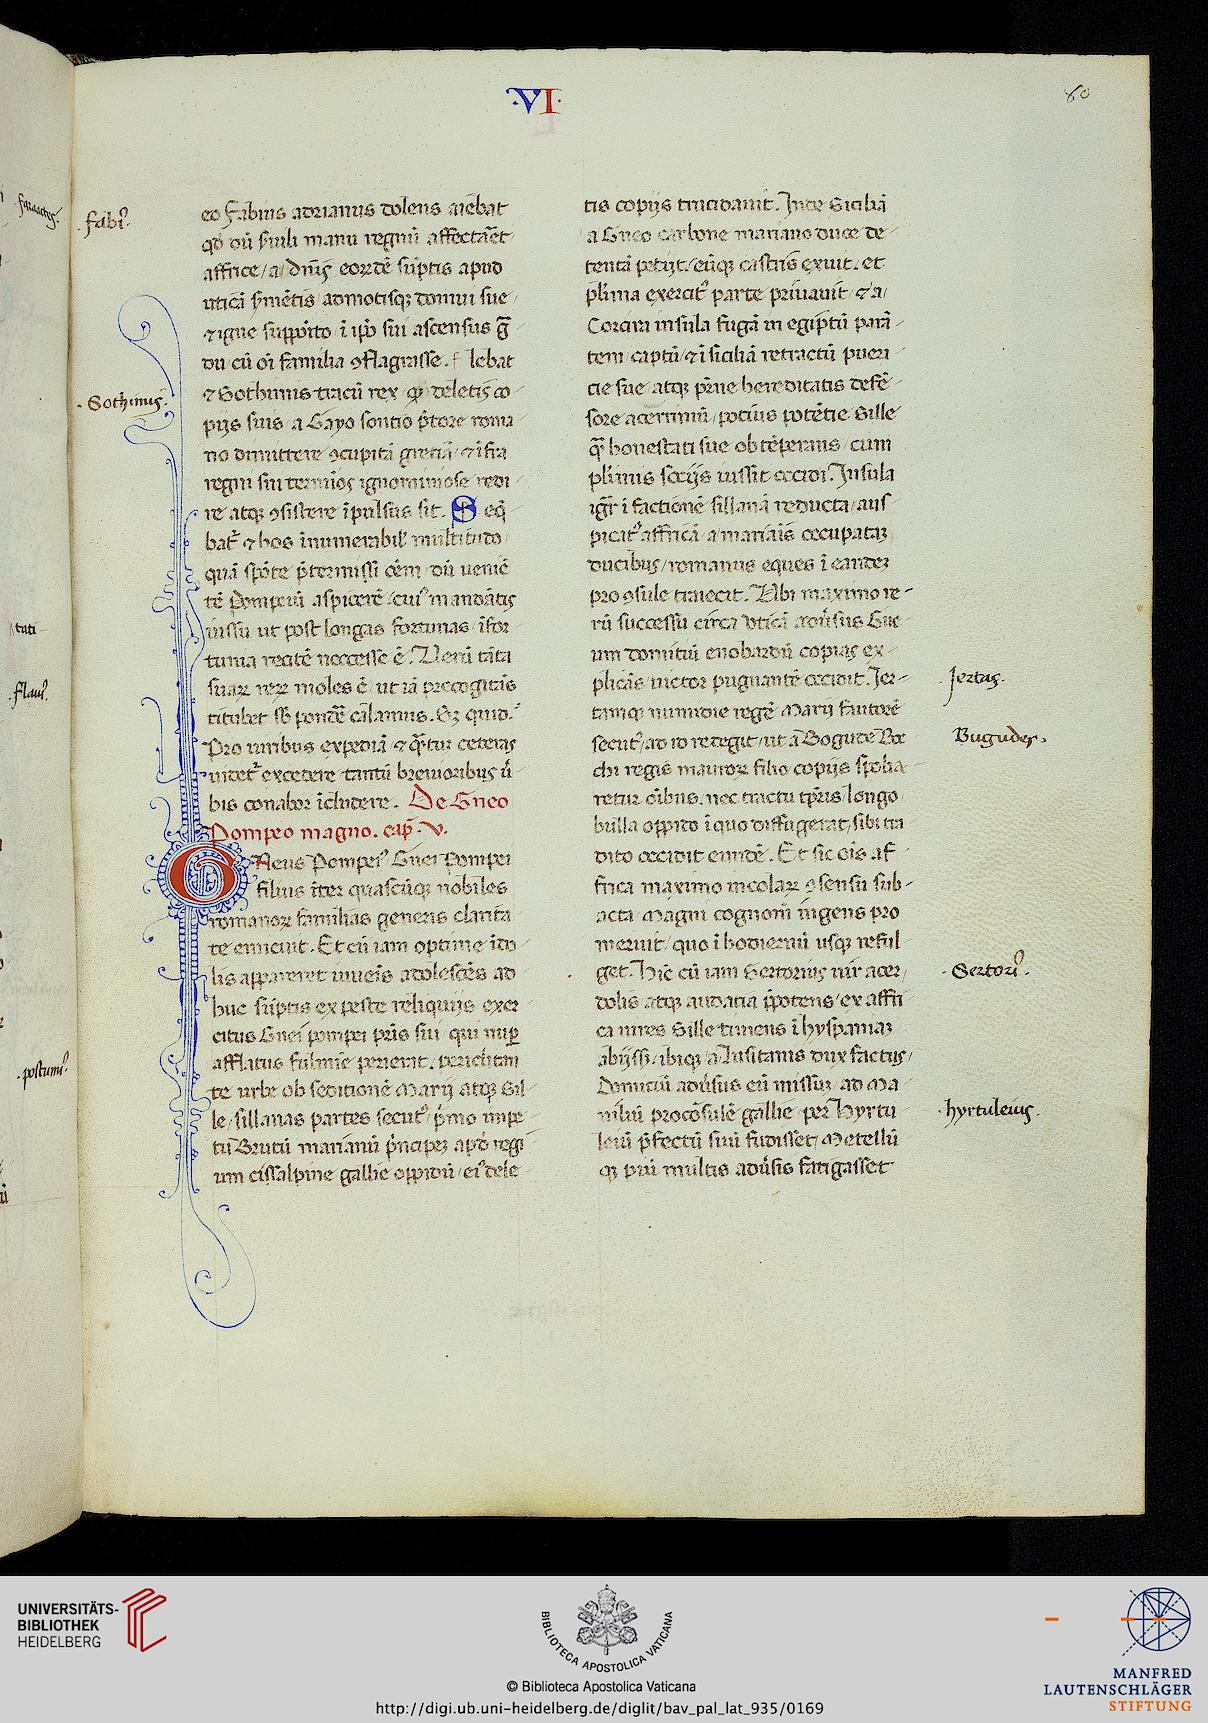 ·VI·
60
Fabiꝰ.
eo Fabius adrianus dolens aiebat
qd̓ dū s̓uili manu regnū affectaēt
affrice / a dn̄is eordē sūptis apud
uticā s̓mētis admotisqꝫ domui sue
⁊ igne supp̄oīto / ī ip̄o sui ascensus g̃
du cū oī̄ familia ꝯflagrasse. flebat
⁊ Sothimus tracū rex / qd̓ deletis co-
Sothimus.
pijs suis a Gayo sontio p̄tore roma
no dimittere ꝯcupitā greciā / ⁊ īfra
regni sui termīos ignominiose redi-
re atqꝫ ꝯsistere īpulsus sit. Seq̄
bat̃ ⁊ hos īnumerabil̓ multitudo
quā spōte p̄termissi cēm / dū ueniē
tē Pompeiū aspicerē / cuiꝰ mandatis
iussu ut post longas fortunas īfor
tunia recitē neccesse ē. Verū tāta
suaꝝ reꝝ moles ē / ut iā precogitās
titubet sb̓ pondē calamus. Sꝫ quid.
Pro uiribus expediā / ⁊ q̄ tur ceteras
uidet̃ excedere / tantū breuioribus ū
bis conabor īcludere. De Gneo
Pompeo magno. cap̄. v.
Gneus Pompeiꝰ Gnei Pompei
filius īter quascūqꝫ nobiles
romanoꝝ familias generis clarita
te emicuit. Et cū iam optime īdo
lis appareret iuuenis adolescēs ad
huc sūptis ex peste reliquiys exer
citus Gnei pompei pr̄is sui / qui nup̱
afflatus fulmīe perierat. periclitan
te urbe ob seditionē Marij atqꝫ Sil-
le / sillanas partes secutꝰ / p̓mo impe-
tu Brutū marianū p̓ncipeꝫ apd̓ regi
um cissalpine gallie oppidū / eiꝰ dele
tis copijs trucidauit. Inde Siciliā
a Gneo carbone mariano duce de-
tentā petijt / eūqꝫ castris exiuit. et
pl̓ima exercitꝰ parte priuauit / ⁊ a
Corcira insula fugā in egiptū parā-
tem captū / ⁊ ī siciliā retractū pueri-
cie sue atqꝫ p̓rne hereditatis defē-
sore acerrimū / pocius potētie Sille
q̄ honestati sue obtēperans / cum
pl̓imis socijs iussit occidi. Insula
igr̄ ī factionē sillanā reducta / aus
picatꝰ affricā a marianis occupataꝫ
ducibus / romanus eques ī eandeꝫ
pro ꝯsule traiecit. Vbi maximo re-
rū successū circa Vticā adūsus Gne
um domitiū enobardū copias ex-
plicās / uictor pugnantē occidit. Ier-
Iertas.
tamqꝫ numidie regē Marij fautorē
secutꝰ / ad id redegit / ut a Bogude Boc
Bugudes.
chi regis mauroꝝ filio / copijs spolia-
retur oībus. nec tractu tp̄ris longo
bulla oppido ī quo diffugerat / sibi tra
dito occidit eundē. Et sic oīs af-
frica maximo incolaꝝ ꝯsensu sub-
acta Magni cognom̄ ingens pro
meruit / quo ī hodiernū usqꝫ reful
get. Hic cū iam Sertorius uir acer
Sertoriꝰ.
dolis atqꝫ audatia ip̄potens / ex affri
ca uires Sille timens ī hyspaniaꝫ
abijssꝫ / ibiqꝫ a lusitanis dux factus
Domitiū adūsus eū missūꝫ / ad Ma-
niliū procōsulē gallie / per Hyrtu-
hyrtuleius.
leiū p̓fectū suū fudisset / Metellū
qꝫ piū multis adūsis fatigasset
faractus.
tati
Flauꝰ.
postumꝰ.
UNIVERSITÄTS-
BIBLIOTHEK
HEIDELBERG
BIBLIOTECA APOSTOLICA VATICANA
© Biblioteca Apostolica Vaticana
http://digi.ub.uni-heidelberg.de/diglit/bav_pal_lat_935/0169
MANFRED
LAUTENSCHLÄGER
STIFTUNG